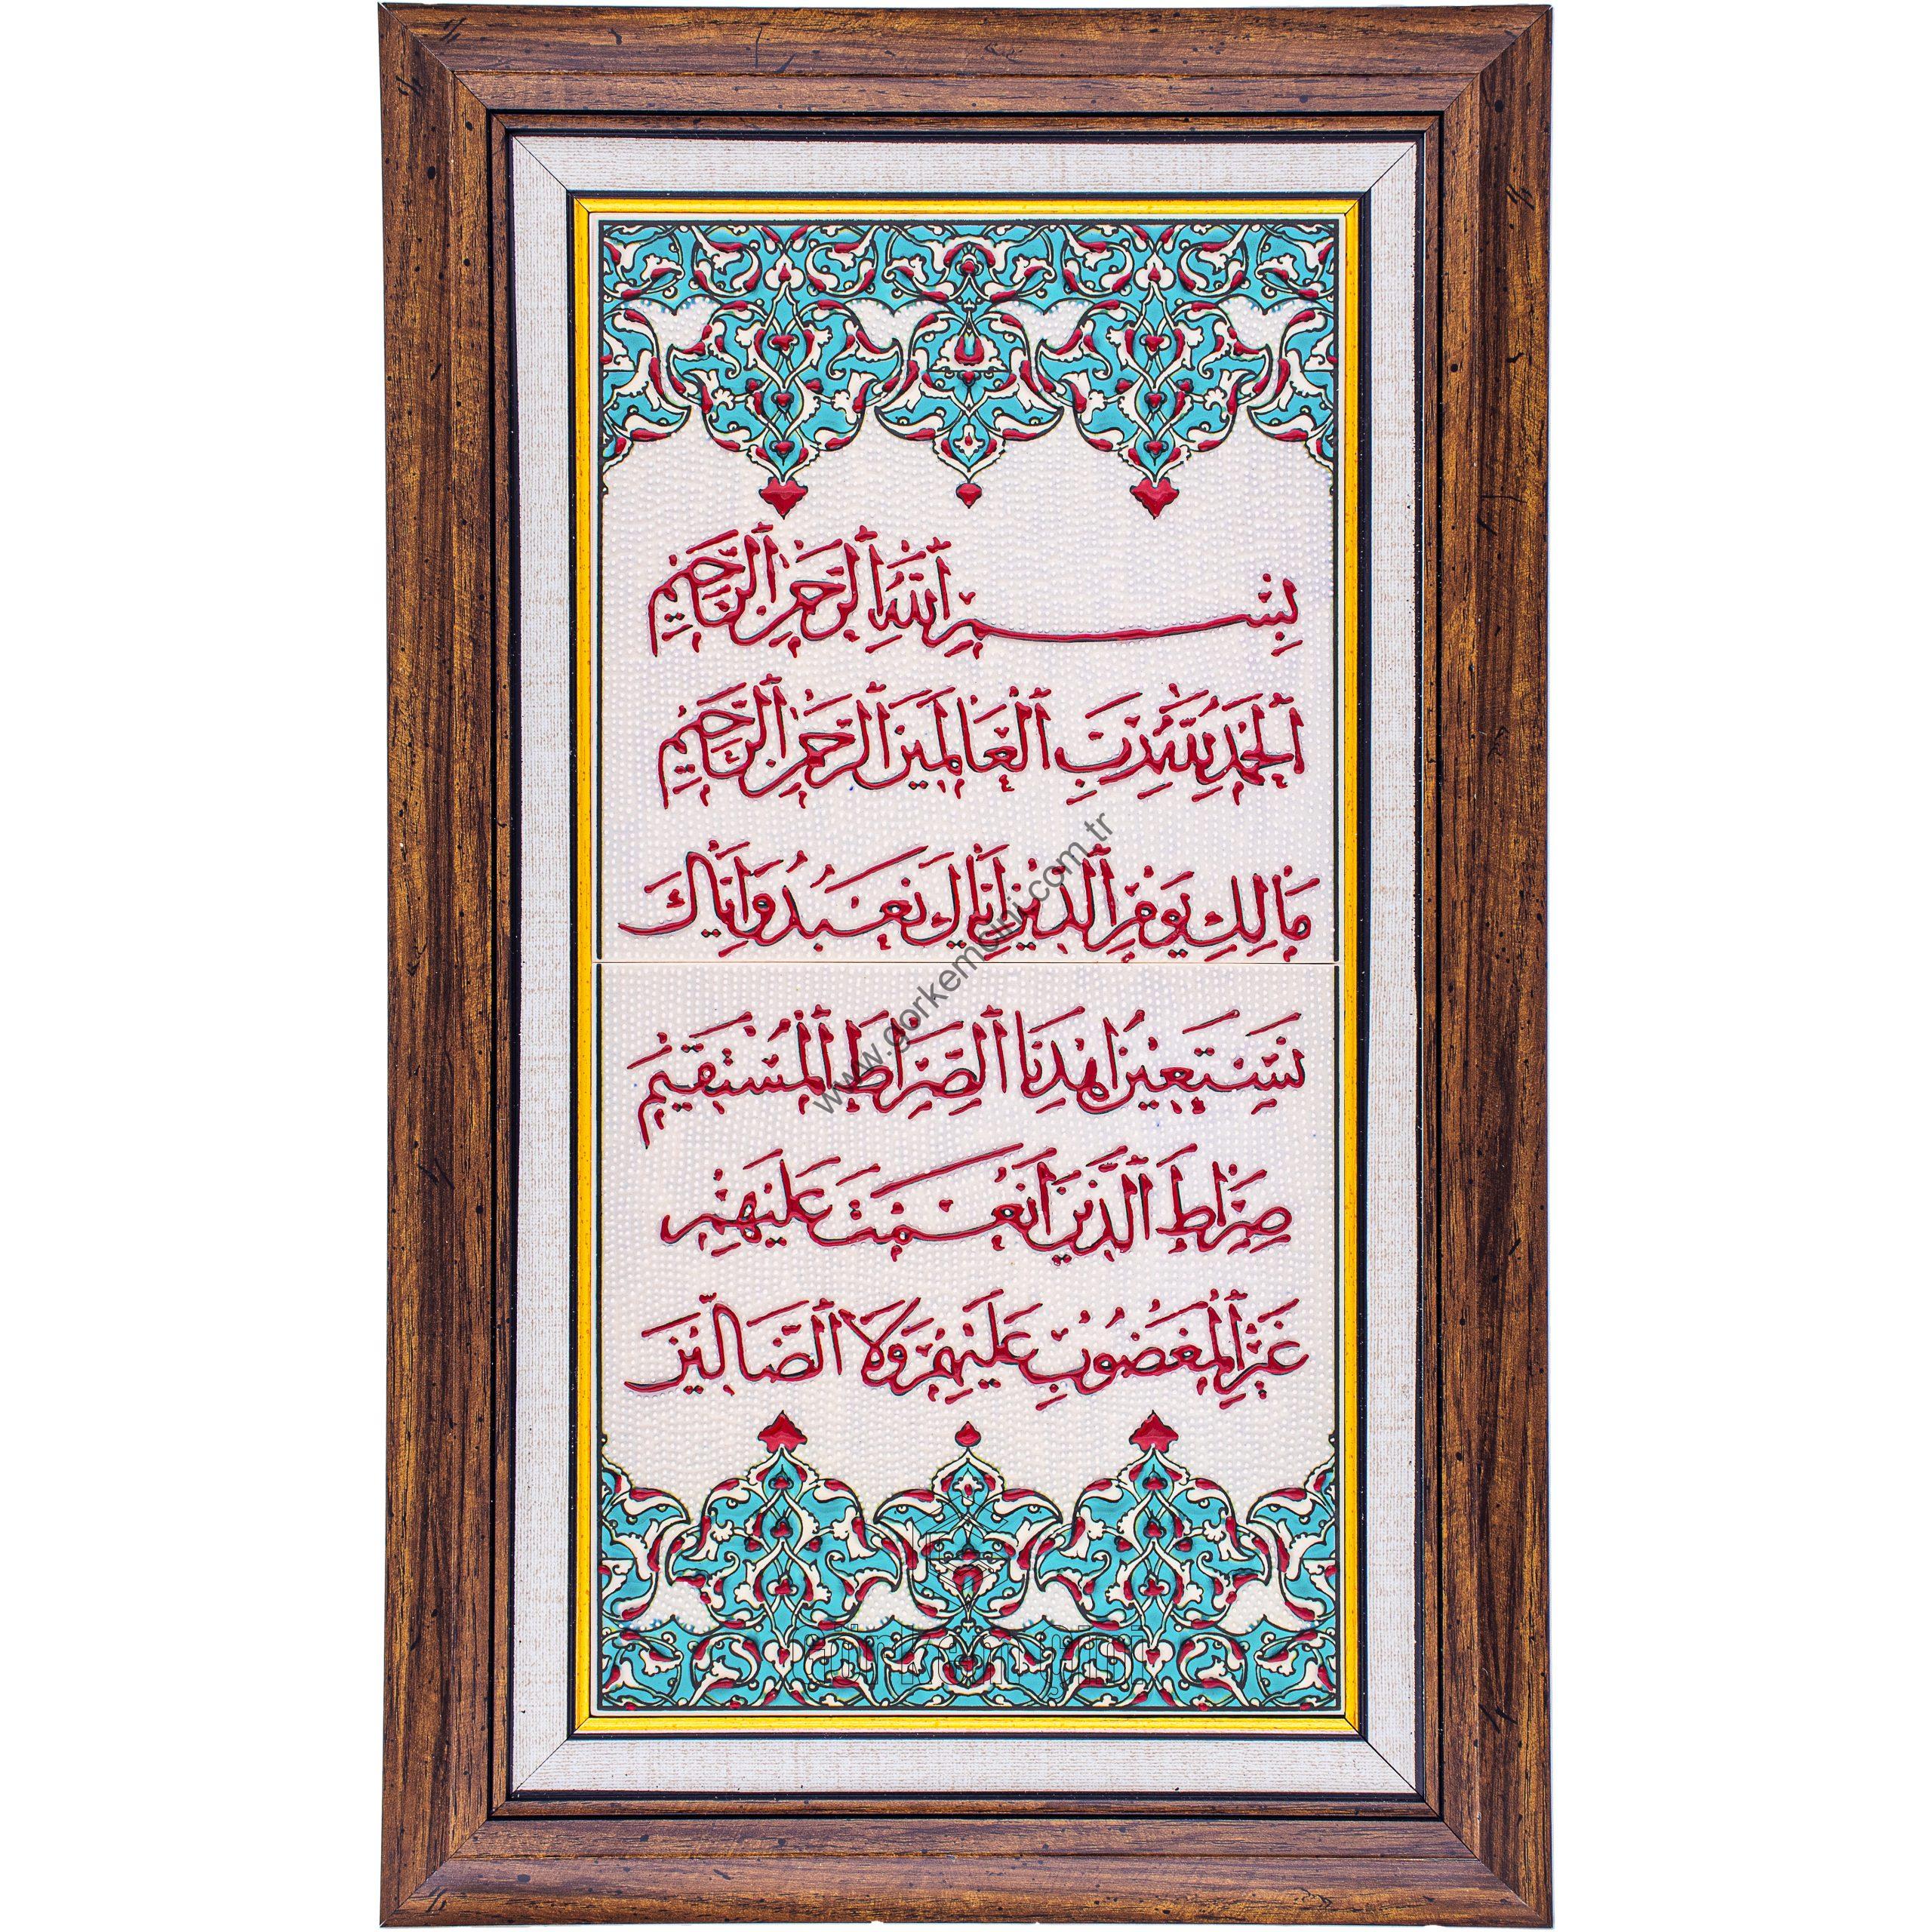 بِسْمِ اللّٰهِ الرَّحْمٰنِ الرَّحِيمِ
اَلْحَمْدُ لِلّٰهِ رَبِّ الْعَالَمِينَ الرَّحْمٰنِ الرَّحِيمِ
مَالِكِ يَوْمِ الدِّينِ اِيَّاكَ نَعْبُدُ وَاِيَّاكَ
نَسْتَعِينُ اِهْدِنَا الصِّرَاطَ الْمُسْتَقِيمَ
صِرَاطَ الَّذِينَ اَنْعَمْتَ عَلَيْهِمْ
غَيْرِ الْمَغْضُوبِ عَلَيْهِمْ وَلَا الضَّالِّينَ
www.gorkemcini.com.tr